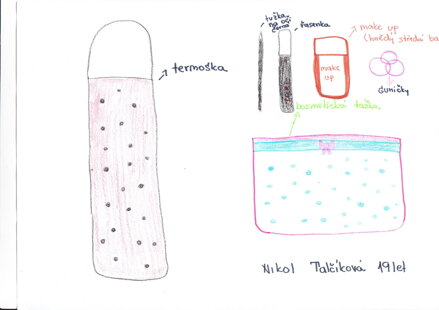 termoška
tužka
na oči
černá
řasenka
make up
(hnědý střední
make up
gumičky
kosmetická taška
Nikol Talčíková 19 let